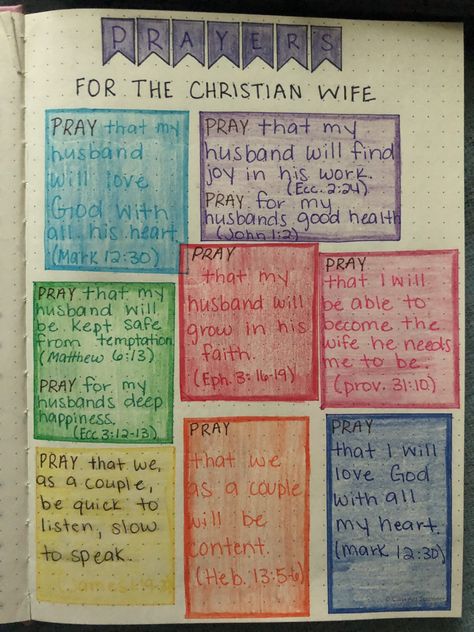 PRAYERS
FOR THE CHRISTIAN WIFE
PRAY that my
husband
will love
God with
all his heart.
(Mark 12:30)
PRAY that my
husband will find
joy in his work.
(Ecc. 2:24)
PRAY for my
husbands good health
(John 1:2)
PRAY that my
husband will
be kept safe
from temptation
(Matthew 6:13)
PRAY for my
husbands deep
happiness.
(Ecc 3:12-13)
PRAY
that my
husband will
grow in his
faith.
(Eph. 3:16-19)
PRAY
that I will
be able to
become the
wife he needs
me to be.
(prov. 31:10)
PRAY that we,
as a couple,
be quick to
listen, slow
to speak.
PRAY
that we
as a couple
will be
content.
(Heb. 13:5-6)
PRAY
that I will
love God
with all
my heart.
(mark 12:30)